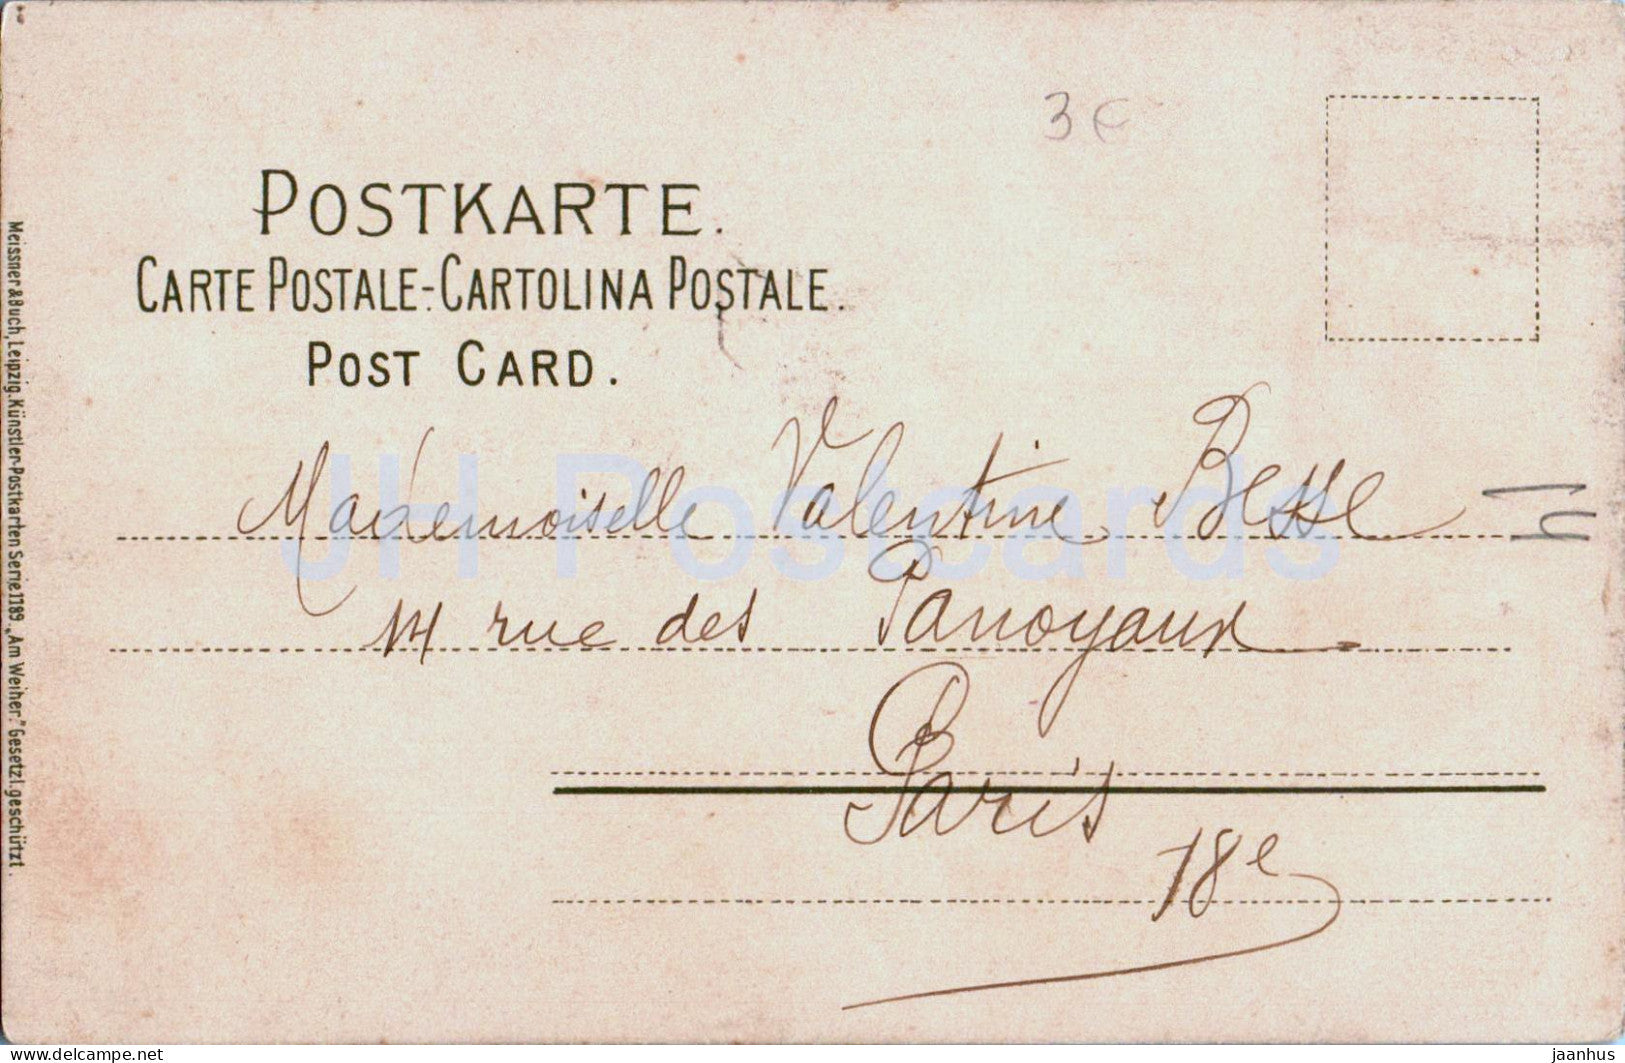 3 €
POSTKARTE.
CARTE POSTALE-CARTOLINA POSTALE.
POST CARD.
Mademoiselle Valentine Besse
14 rue des Panoyaux
Paris
18e
Meissner & Buch, Leipzig. Künstler-Postkarten Serie 1189. „Am Weiher." Gesetzl. geschützt.
JH Postcards
www.delcampe.net
jaanhus